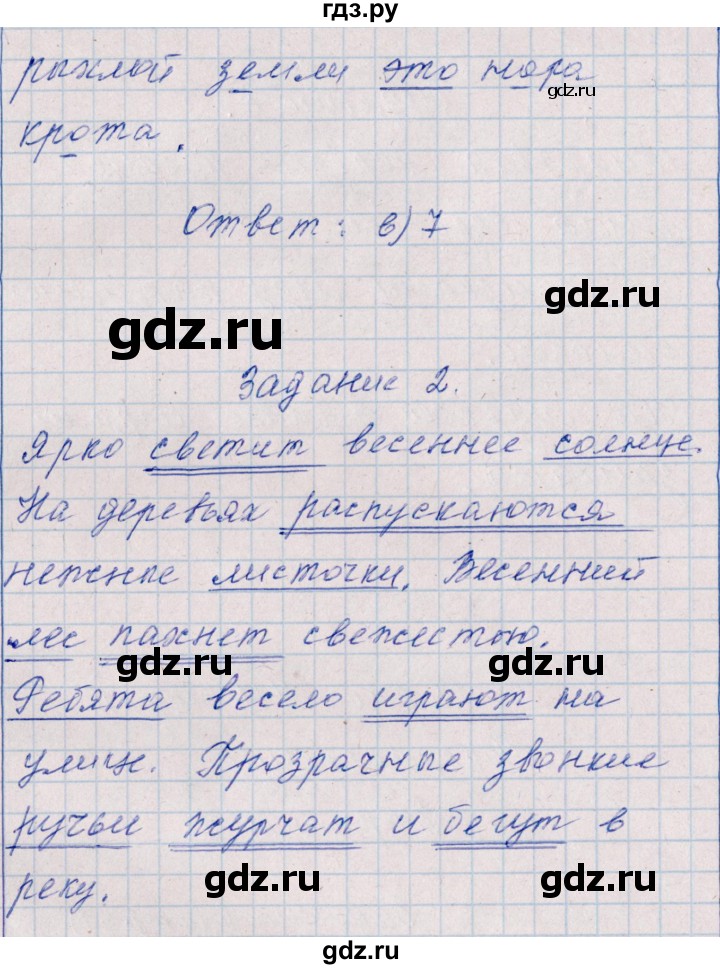 гдз.ру
рыхлой земли это нора
gdz.ru
крота.
Ответ: в) 7
gdz.ru
gdz.ru
Задание 2.
Ярко светит весеннее солнце.
На деревьях распускаются
нежные листочки. Весенний
лес пахнет свежестью.
gdz.ru gdz.ru
Ребята весело играют на
улице. Прозрачные звонкие
ручьи журчат и бегут в
gdz.ru gdz.ru
реку.
gdz.ru